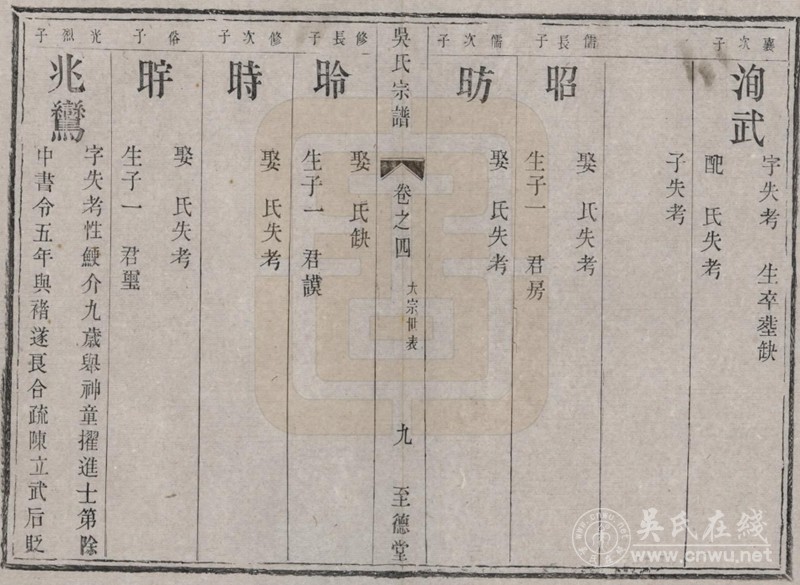 襄次子
洵武
字失考　生卒塟缺
配　氏失考
子失考
儒長子
昭
娶　氏失考
生子一　君房
儒次子
昉
娶　氏失考
吳氏宗譜
卷之四
大宗世表
九
至德堂
修長子
昤
娶　氏缺
生子一　君謨
修次子
時
娶　氏失考
俗子
娶　氏失考
生子一　君璽
光烈子
兆鸞
字失考性鯁介九歲舉神童擢進士第除
中書令五年與褚遂良合疏陳立武后貶
吴氏在线
www.cnwu.net